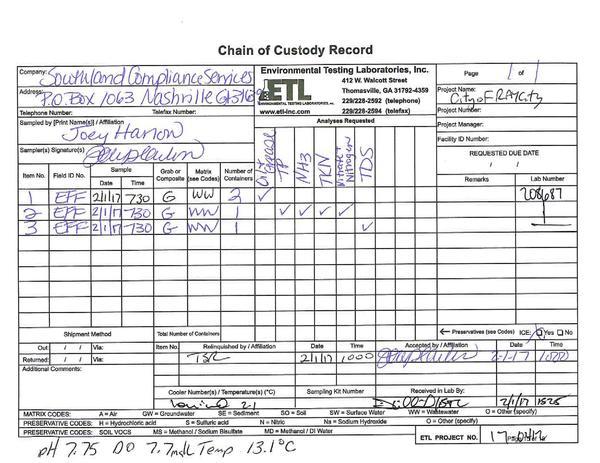 Chain of Custody Record
Company: Southland Compliance Services
Address: P.O. Box 1063 Nashville GA 31639
Telephone Number: Telefax Number:
Sampled by [Print Name(s)] / Affiliation
Joey Harron
Sampler(s) Signature(s)
Environmental Testing Laboratories, Inc.
ETL
ENVIRONMENTAL TESTING LABORATORIES, INC.
www.etl-inc.com
412 W. Walcott Street
Thomasville, GA 31792-4359
229/228-2592 (telephone)
229/228-2594 (telefax)
Page 1 of 1
Project Name:
City of RAY City
Project Number:
Project Manager:
Facility ID Number:
REQUESTED DUE DATE
/ /
Analyses Requested
Oil & Grease
TP
NH3
TKN
Nitrate + Nitrogen
TDS
Item No. Field ID No. Sample Date Time Grab or Composite Matrix (see Codes) Number of Containers Remarks Lab Number
1 EFF 2/1/17 730 G WW 2 ✓ 208687
2 EFF 2/1/17 730 G WW 1 ✓ ✓ ✓ ✓
3 EFF 2/1/17 730 G WW 1 ✓
← Preservatives (see Codes) ICE: Yes No
Shipment Method
Out: / / Via:
Returned: / / Via:
Additional Comments:
Total Number of Containers
Item No. Relinquished by / Affiliation Date Time Accepted by / Affiliation Date Time
2/1/17 1000 2-1-17 1000
Cooler Number(s) / Temperature(s) (°C) Sampling Kit Number Received in Lab By: Date Time
2.1 2/1/17 1525
MATRIX CODES: A = Air GW = Groundwater SE = Sediment SO = Soil SW = Surface Water WW = Wastewater O = Other (specify)
PRESERVATIVE CODES: H = Hydrochloric acid S = Sulfuric acid N = Nitric Na = Sodium Hydroxide O = Other (specify)
PRESERVATIVE CODES: SOIL VOCS MS = Methanol / Sodium Bisulfate MD = Methanol / DI Water
ETL PROJECT NO.
pH 7.75 DO 7.7 mg/L Temp 13.1°C